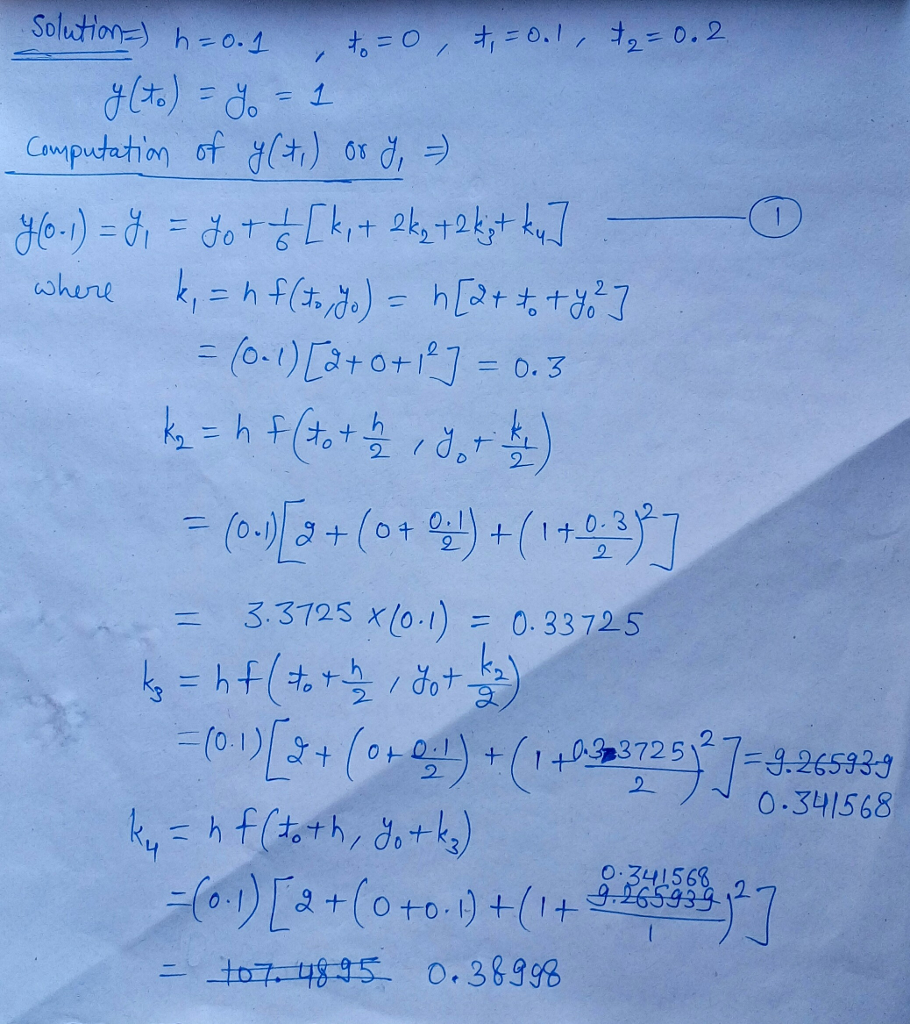 Solution⇒) h = 0.1 , t₀ = 0 , t₁ = 0.1 , t₂ = 0.2
y(t₀) = y₀ = 1
Computation of y(t₁) or y₁ ⇒)
y(0.1) = y₁ = y₀ + 1/6 [k₁ + 2k₂ + 2k₃ + k₄] ——— ①
where k₁ = h f(t₀, y₀) = h[2 + t₀ + y₀²]
= (0.1)[2 + 0 + 1²] = 0.3
k₂ = h f(t₀ + h/2 , y₀ + k₁/2)
= (0.1)[2 + (0 + 0.1/2) + (1 + 0.3/2)²]
= 3.3725 × (0.1) = 0.33725
k₃ = h f(t₀ + h/2 , y₀ + k₂/2)
= (0.1)[2 + (0 + 0.1/2) + (1 + 0.33725/2)²] = 9.265939
0.341568
k₄ = h f(t₀ + h, y₀ + k₃)
0.341568
= (0.1)[2 + (0 + 0.1) + (1 + 9.265939/1)²]
= 107.4895 0.38998